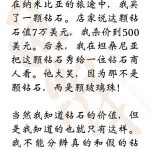 在纳米比亚的旅途中，我买
了一颗钻石。店家说这颗钻
石值7万美元，我杀价到500
美元。后来，我在坦桑尼亚
把这颗钻石秀给一位钻石商
人看。他大笑，因为那不是
颗钻石，而是颗玻璃珠！
当然我知道钻石的价值，但
是我知道的也就只有这样。
我不能分辨真的和假的钻